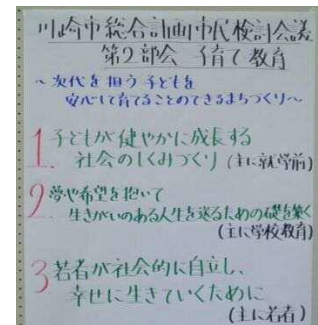 川崎市総合計画市民検討会議
第2部会 子育て・教育
～次代を担う子どもを
安心して育てることのできるまちづくり～
1 子どもが健やかに成長する
社会のしくみづくり (主に就学前)
2 夢や希望を抱いて
生きがいのある人生を送るための礎を築く
(主に学校教育)
3 若者が社会的に自立し、
幸せに生きていくために
(主に若者)